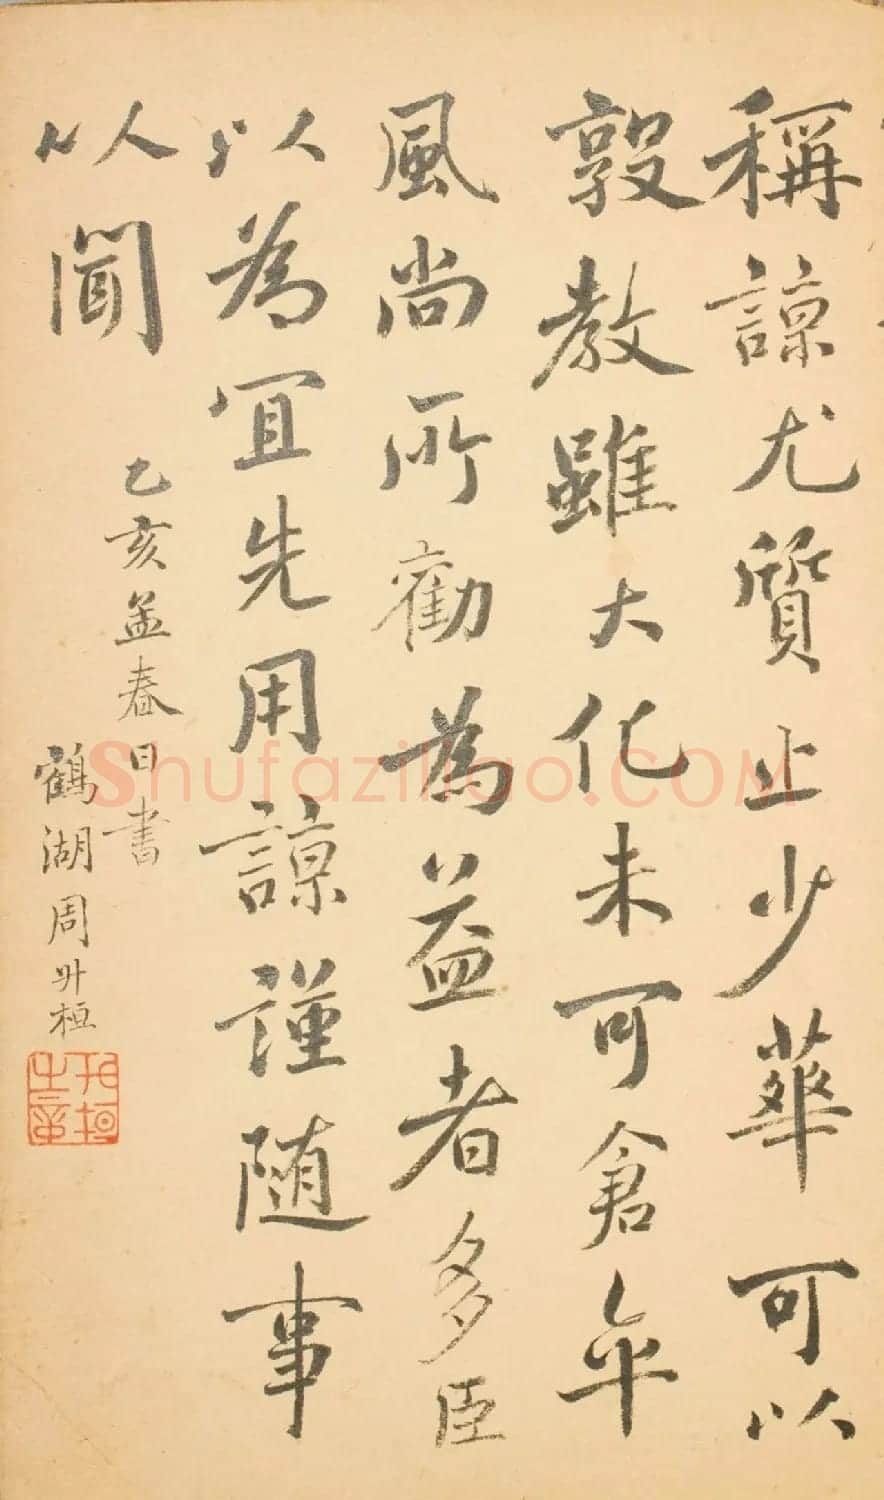 稱諒尤質止少華可以
敦教雖大化未可倉卒
風尚所勸為益者多臣
以為宜先用諒謹隨事
以聞
乙亥孟春日書
鶴湖周升桓
Shufaziliao.COM